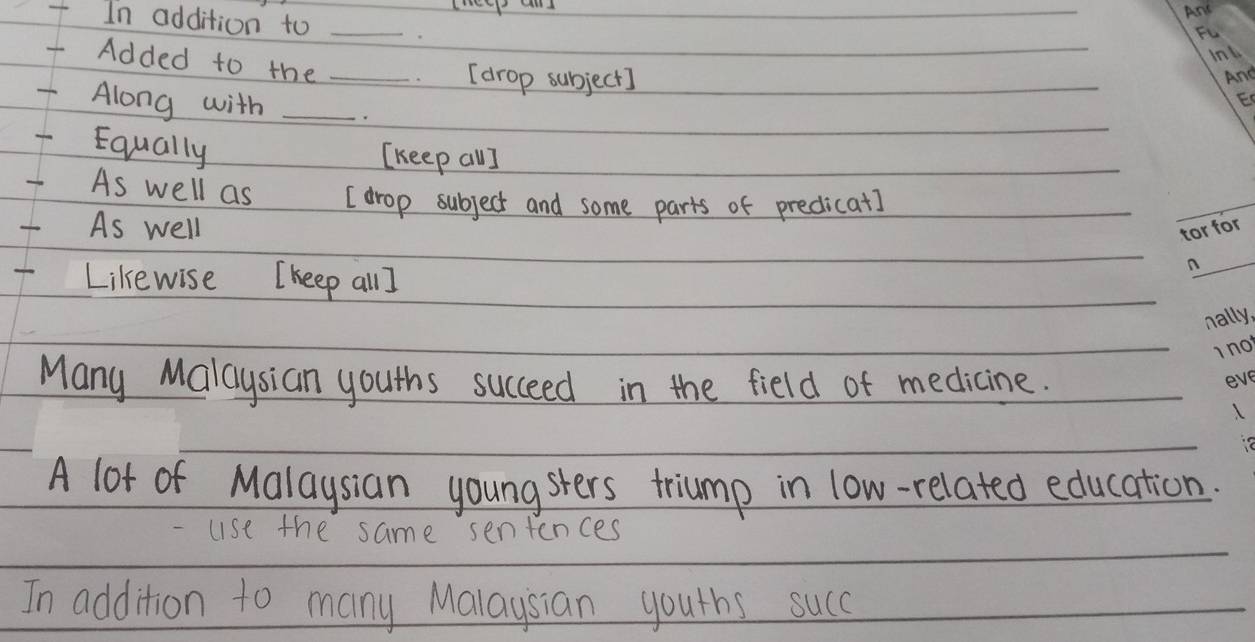 - In addition to ____.
- Added to the ____. [drop subject]
- Along with ____.
- Equally [keep all]
- As well as [drop subject and some parts of predicat]
- As well
- Likewise [keep all]
Many Malaysian youths succeed in the field of medicine.
A lot of Malaysian youngsters triump in low-related education.
- use the same sentences
In addition to many Malaysian youths succ
tor for
n
nally,